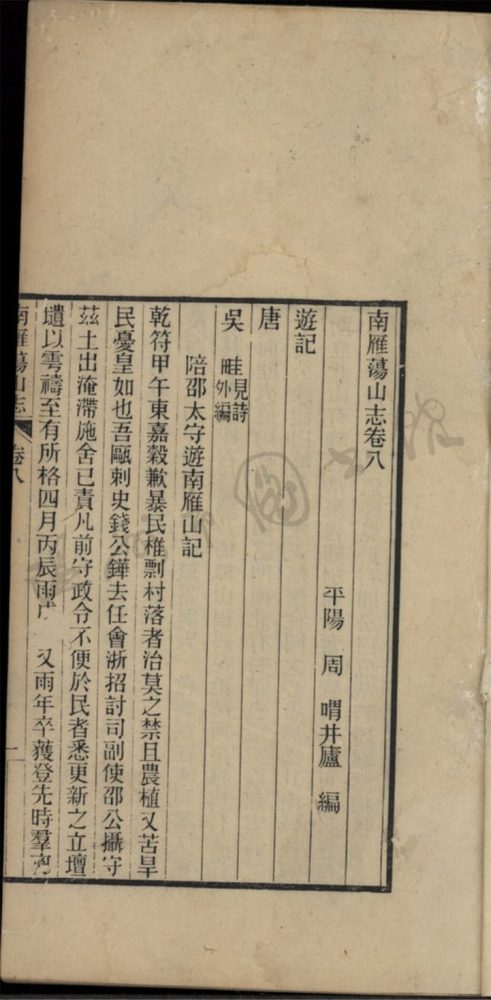 南雁蕩山志卷八
平陽 周 喟井廬 編
遊記
唐
吳 畦見詩外編
陪邵太守遊南雁山記
乾符甲午東嘉穀歉暴民椎剽村落者治莫之禁且農植又苦旱
民憂皇如也吾甌刺史錢公鏵去任會浙招討司副使邵公攝守
茲土出淹滯施舍已責凡前守政令不便於民者悉更新之立壇
壝以雩禱至有所格四月丙辰雨 又雨年卒獲登先時羣
南雁蕩山志 卷八 一